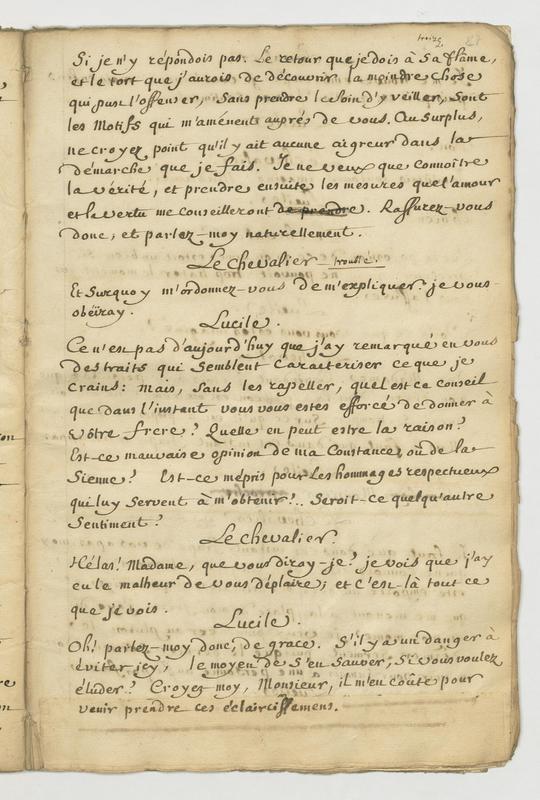 treize.
Si je n'y répondois pas. Le retour que je dois à sa flâme,
et le tort que j'aurois de découvrir la moindre chose
qui pust l'offenser, sans prendre le soin d'y veiller, sont
les Motifs qui m'aménent auprés de vous. Au surplus,
ne croyez point qu'il y ait aucune aigreur dans la
démarche que je fais. Je ne veux que connoître
la vérité, et prendre ensuite les mesures que l'amour
et la vertu me conseilleront de prendre. Rassurez-vous
donc, et parlez-moy naturellement.
Le Chevalier troublé.
Et Surquoy m'ordonnez-vous de m'expliquer? je vous
obéïray.
Lucile.
Ce n'est pas d'aujourd'huy que j'ay remarqué en vous
des traits qui Semblent Caracteriser ce que je
Crains: mais, sans les rapeller, quel est ce conseil
que dans l'instant vous vous estes efforcé de donner à
vôtre frere? Quelle en peut estre la raison?
Est-ce mauvaise opinion de ma Constance, ou de la
Sienne? Est-ce mépris pour Les hommages respectueux
qui luy Servent à m'obtenir?.. Seroit-ce quelqu'autre
Sentiment?
Le Chevalier.
Hélas! Madame, que vous diray-je? je vois que j'ay
eu le malheur de vous déplaire; et c'est-là tout ce
que je vois.
Lucile.
Oh! parlez-moy donc, de grace. S'il y a un danger à
éviter icy, le moyen de s'en Sauver, Si vous voulez
éluder? Croyez moy, Monsieur, il m'en coûte pour
venir prendre ces éclaircissemens.